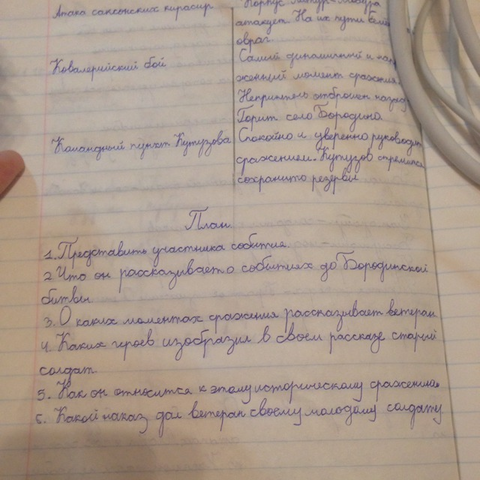 Атака саксонских кирасир.
Корпус Латур-Мобура
атакует. На их пути был
овраг.
Ковалерийский бой
Самый динамичный и нап
женный момент сражения.
Неприятель отброшен назад
Горит село Бородино.
Командный пункт Кутузова
Спокойно и уверенно руководит
сражением. Кутузов стремится
сохранить резервы
План
1. Представить участника события.
2. Что он рассказывает о событиях до Бородинской
битвы.
3. О каких моментах сражения рассказывает ветеран
4. Каких героев изобразил в своем рассказе старый
солдат.
5. Как он относится к этому историческому сражению.
6. Какой наказ дал ветеран своему молодому солдату